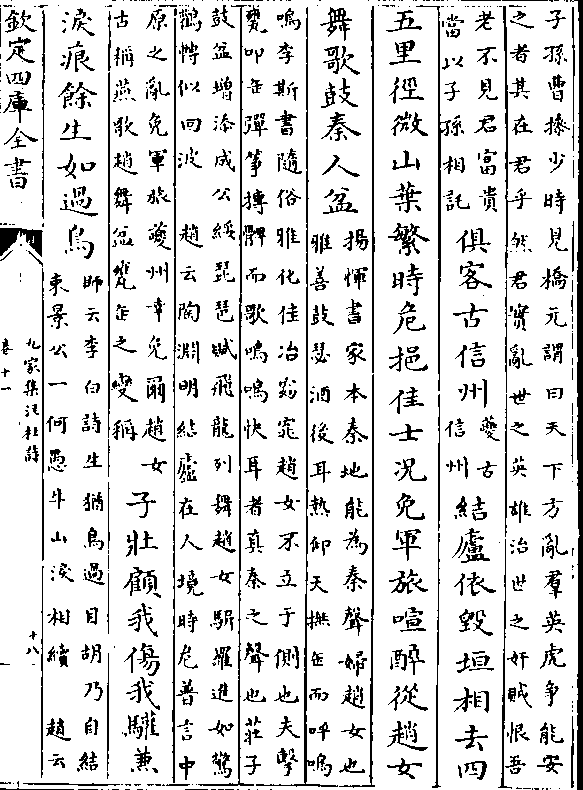 子孫曹操少時見橋元謂曰天下方亂羣英虎爭能安
之者其在君乎然君實亂世之英雄治世之奸賊恨吾
老不見君富貴
當以子孫相託
俱客古信州
夔古
信州
結廬依毀垣相去四
五里徑微山葉繁時危挹佳士况免軍旅喧醉從趙女
舞歌鼓秦人盆
楊惲書家本秦地能為秦聲婦趙女也
雅善鼓瑟酒後耳熱仰天撫缶而呼嗚
嗚李斯書隨俗雅化佳冶窈窕趙女不立于側也夫擊
甕叩缶彈箏搏髀而歌嗚嗚快耳者真秦之聲也莊子
鼓盆增添成公綏琵琶賦飛龍列舞趙女駢羅進如驚
鸖轉似回波 趙云陶淵明結廬在人境時危普言中
原之亂免軍旅夔州幸免爾趙女
古稱燕歌趙舞盆甕缶之變稱
子壯顧我傷我驩兼
淚痕餘生如過鳥
師云李白詩生猶鳥過目胡乃自結
束景公一何愚牛山淚相續 趙云
欽定四庫全書
九家集注杜詩
卷十一
十八